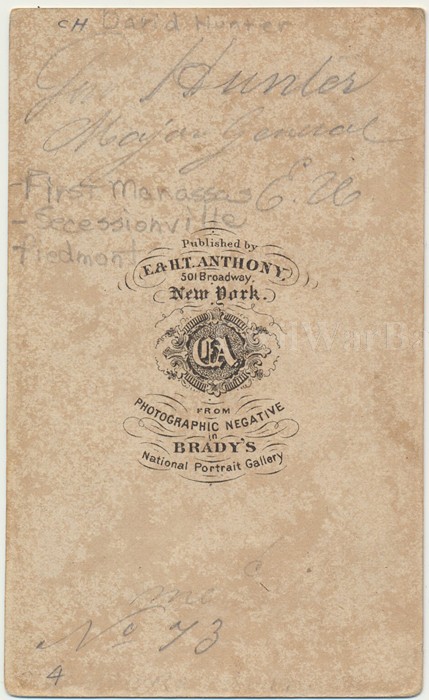 CH David Hunter
Gen Hunter
Major General
- First Manassas
- Secessionville
Tiedmont
Published by
E. & H.T. ANTHONY,
501 Broadway,
New York.
FROM
PHOTOGRAPHIC NEGATIVE
in
BRADY'S
National Portrait Gallery
No 73
4